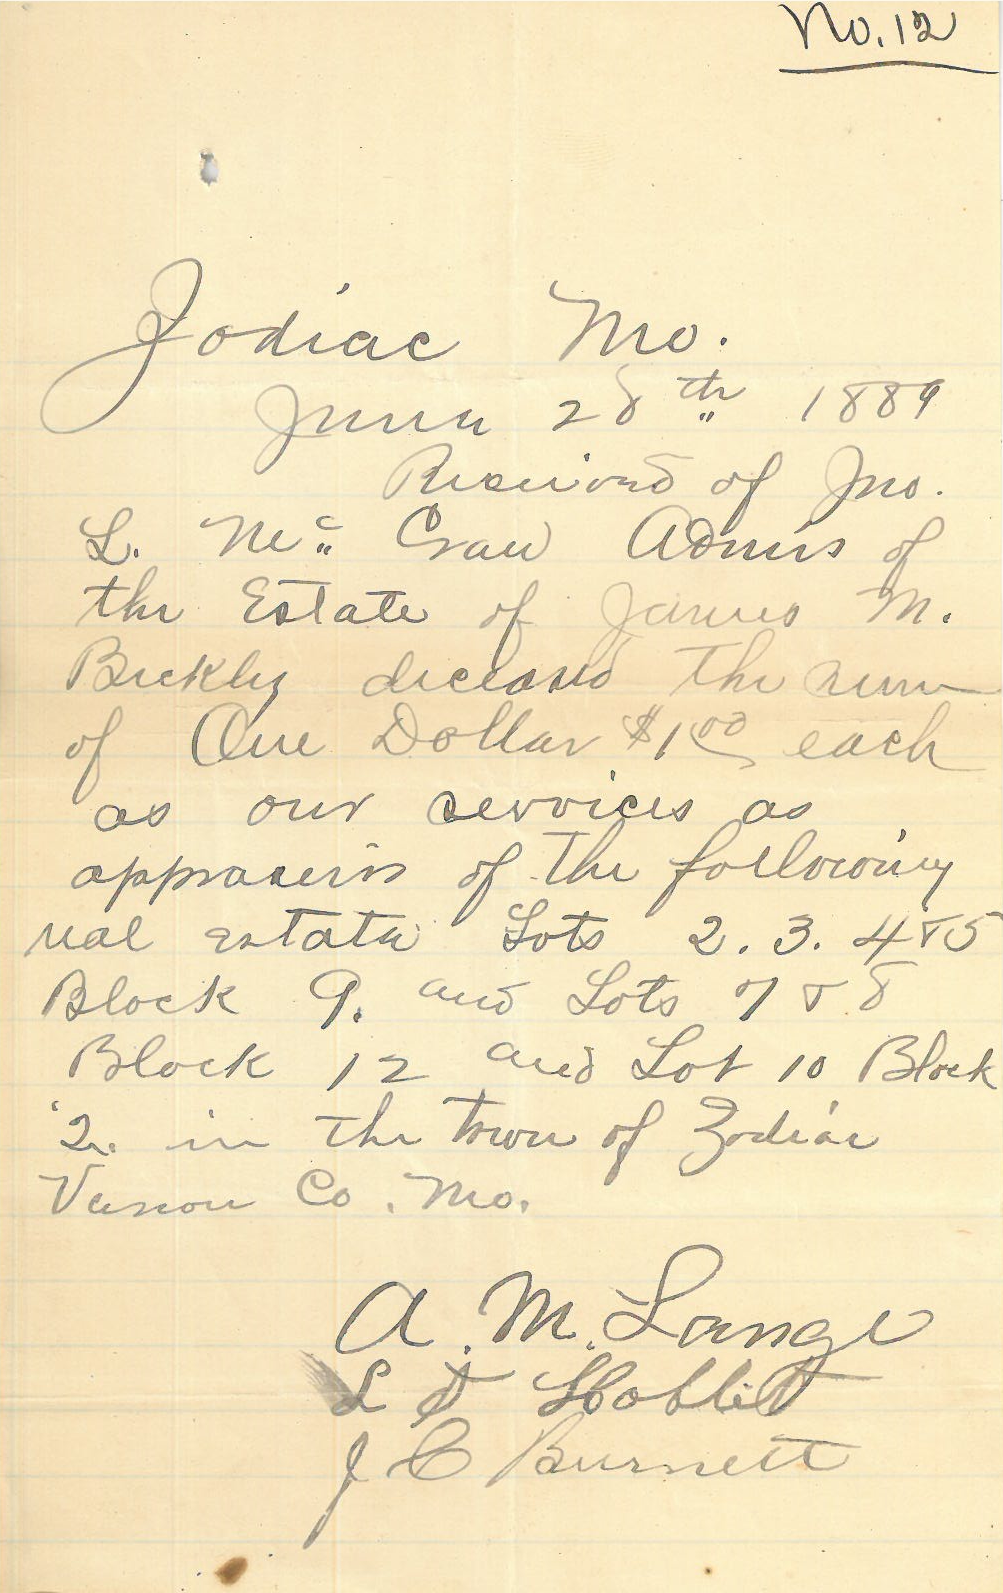 No. 12
Zodiac Mo.
June 28th 1889
Received of Jno.
L. Mc. Craw Admr's of
the Estate of James M.
Bickley deceased the sum
of One Dollar $1.00 each
as our services as
appraisers of the following
real estate Lots 2. 3. 4 & 5
Block 9. and Lots 7 & 8
Block 12 and Lot 10 Block
2. in the town of Zodiac
Vernon Co. Mo.
A. M. Lange
L Hoblit
J C Burnett